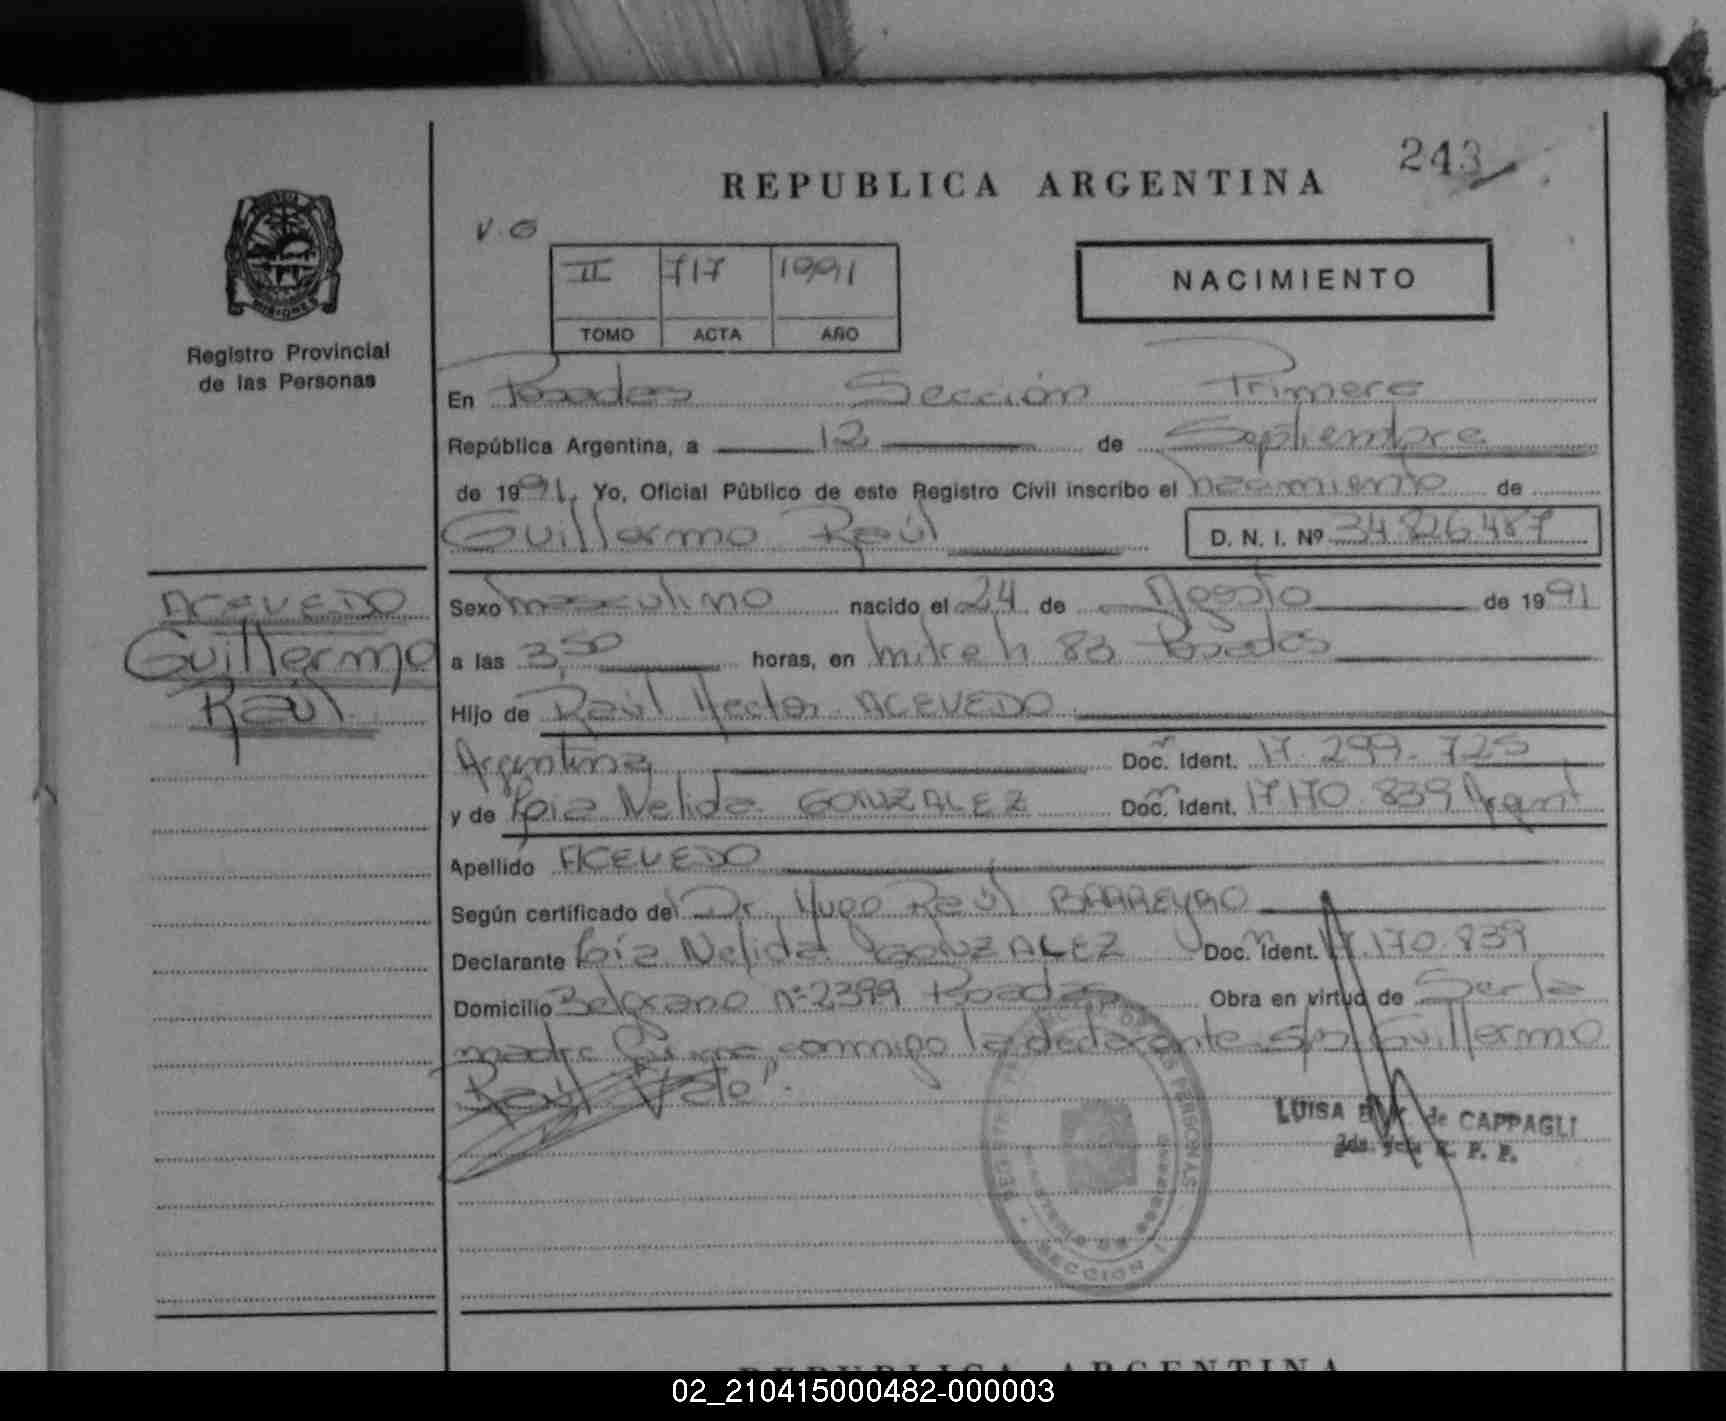 243
REPUBLICA ARGENTINA
V. G
II 717 1991
TOMO ACTA AÑO
NACIMIENTO
MISIONES
Registro Provincial
de las Personas
En Posadas Sección Primera
República Argentina, a 12 de Septiembre
de 1991. Yo, Oficial Público de este Registro Civil inscribo el nacimiento de
Guillermo Raúl D. N. I. Nº 34.826.487
ACEVEDO
Guillermo
Raúl
Sexo masculino nacido el 24 de Agosto de 1991
a las 3,50 horas, en Mitre h 83 Posadas
Hijo de Raúl Hector ACEVEDO
Argentina Doc. Ident. 17.299.725
y de Pía Nelida GONZALEZ Doc. Ident. 17.170.839 Argent
Apellido ACEVEDO
Según certificado del Dr. Hugo Raúl BARREYRO
Declarante Pía Nelida GONZALEZ Doc. Ident. 17.170.839
Domicilio Belgrano Nº 2399 Posadas Obra en virtud de Ser la
madre Firma conmigo la declarante s/r Guillermo
Raúl Vale".
LUISA de CAPPAGLI
R. P. P.
REGISTRO PROVINCIAL DE LAS PERSONAS
SECCION 1
REPUBLICA ARGENTINA
02_210415000482-000003